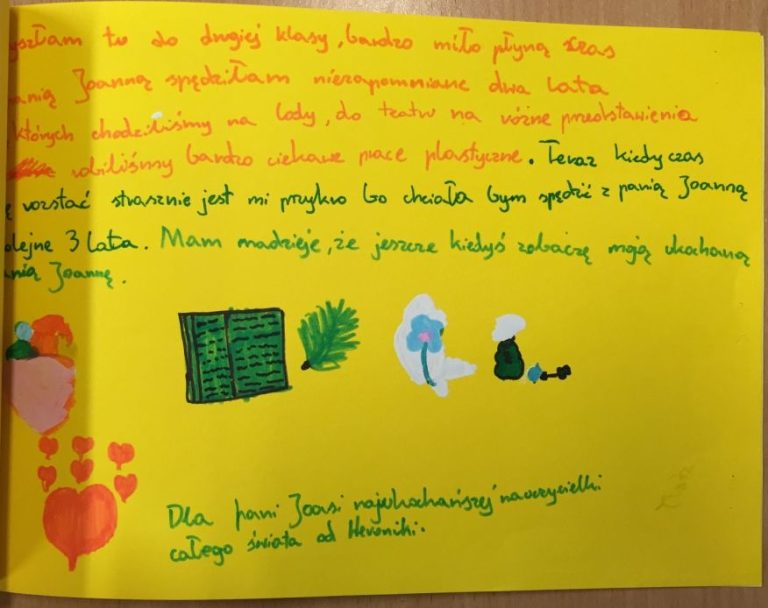 szłam tu do drugiej klasy, bardzo miło płyną czas
panią Joanną spędziłam niezapomniane dwa lata
których chodziliśmy na lody, do teatru na różne przedstawienia
robiliśmy bardzo ciekawe prace plastyczne. Teraz kiedy czas
ę rozstać strasznie jest mi przykro bo chciała bym spędzić z panią Joanną
olejne 3 lata. Mam nadzieje, że jeszcze kiedyś zobaczę moją ukochaną
anią Joannę.
Dla pani Joasi najukochańszej nauczycielki
całego świata od Weroniki.